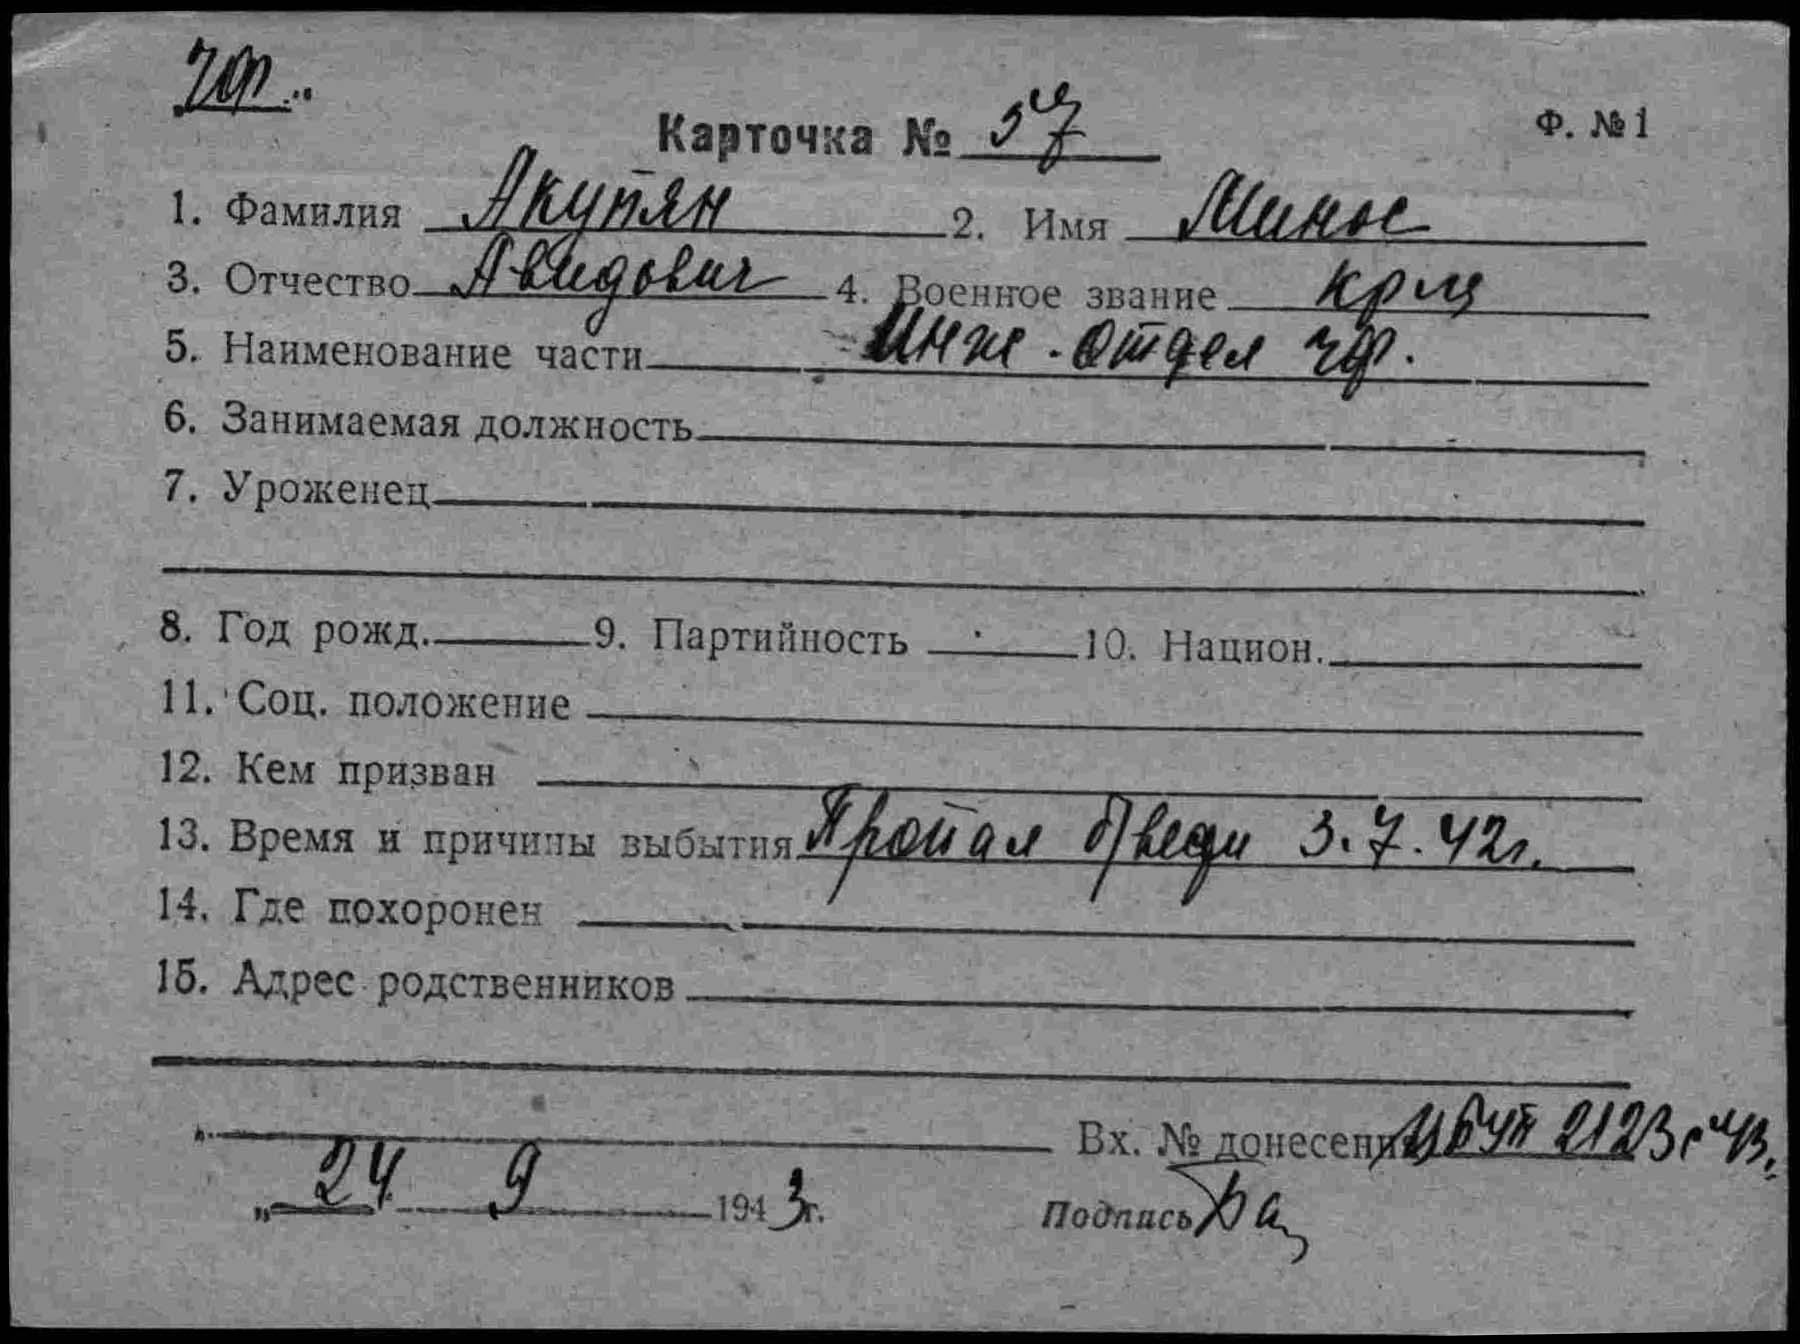 ЧФ.
Карточка № 57 Ф. № 1
1. Фамилия Акупян 2. Имя Минос
3. Отчество Авидович 4. Военное звание кр-ц
5. Наименование части Инж. отдел ЧФ.
6. Занимаемая должность
7. Уроженец
8. Год рожд. 9. Партийность 10. Национ.
11. Соц. положение
12. Кем призван
13. Время и причины выбытия Пропал б/вести 3.7.42г.
14. Где похоронен
15. Адрес родственников
Вх. № донесения 2123с 43.
„24 9 1943г. Подпись